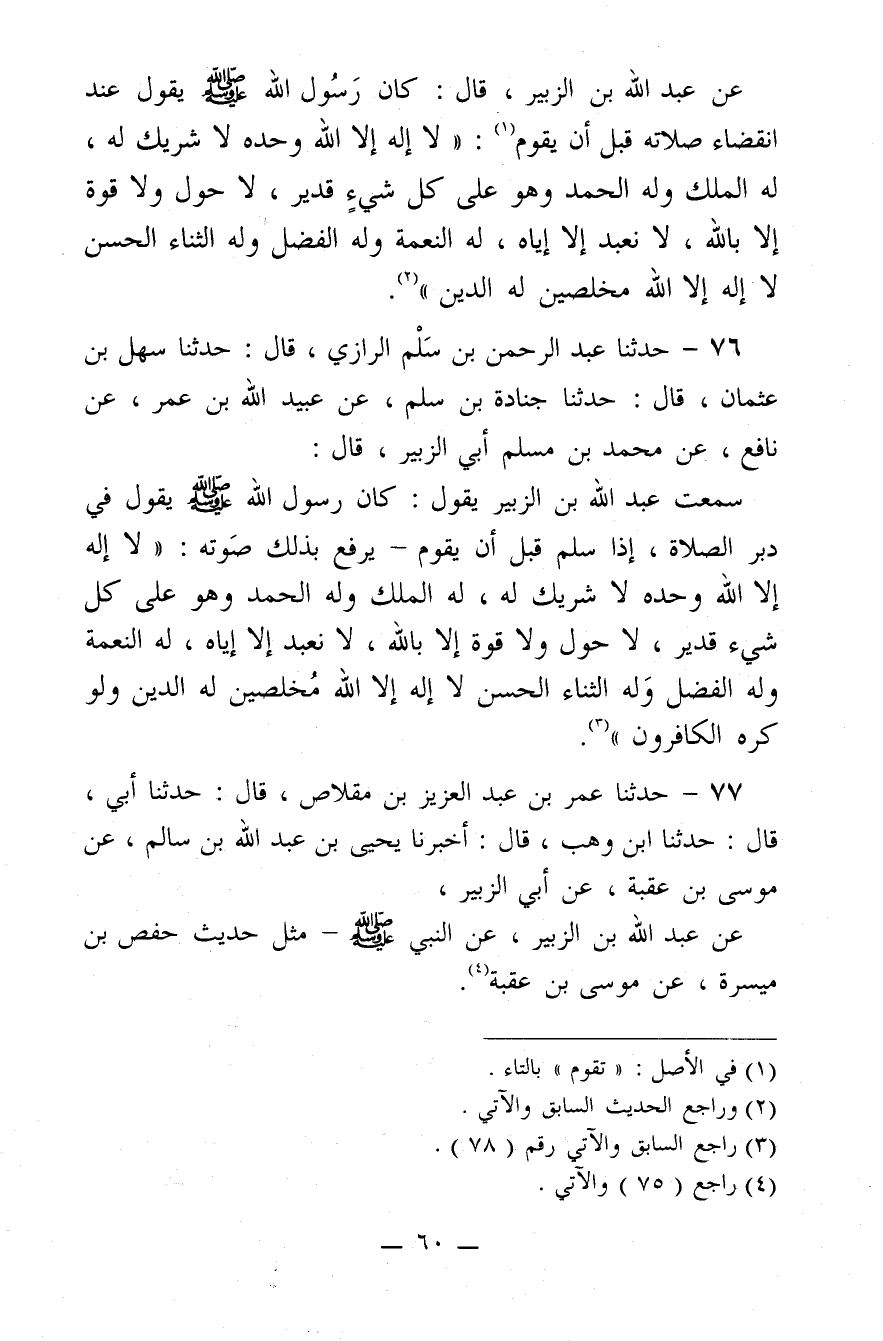 عن عبد الله بن الزبير ، قال : كان رَسُول الله ﷺ يقول عند
انقضاء صلاته قبل أن يقوم(١) : « لا إله إلا الله وحده لا شريك له ،
له الملك وله الحمد وهو على كل شيءٍ قدير ، لا حول ولا قوة
إلا بالله ، لا نعبد إلا إياه ، له النعمة وله الفضل وله الثناء الحسن
لا إله إلا الله مخلصين له الدين »(٢).
٧٦ – حدثنا عبد الرحمن بن سَلْم الرازي ، قال : حدثنا سهل بن
عثمان ، قال : حدثنا جنادة بن سلم ، عن عبيد الله بن عمر ، عن
نافع ، عن محمد بن مسلم أبي الزبير ، قال :
سمعت عبد الله بن الزبير يقول : كان رسول الله ﷺ يقول في
دبر الصلاة ، إذا سلم قبل أن يقوم – يرفع بذلك صَوته : « لا إله
إلا الله وحده لا شريك له ، له الملك وله الحمد وهو على كل
شيء قدير ، لا حول ولا قوة إلا بالله ، لا نعبد إلا إياه ، له النعمة
وله الفضل وَله الثناء الحسن لا إله إلا الله مُخلصين له الدين ولو
كره الكافرون »(٣).
٧٧ – حدثنا عمر بن عبد العزيز بن مقلاص ، قال : حدثنا أبي ،
قال : حدثنا ابن وهب ، قال : أخبرنا يحيى بن عبد الله بن سالم ، عن
موسى بن عقبة ، عن أبي الزبير ،
عن عبد الله بن الزبير ، عن النبي ﷺ – مثل حديث حفص بن
ميسرة ، عن موسى بن عقبة(٤).
(١) في الأصل : « تقوم » بالتاء .
(٢) وراجع الحديث السابق والآتي .
(٣) راجع السابق والآتي رقم ( ٧٨ ) .
(٤) راجع ( ٧٥ ) والآتي .
— ٦٠ —